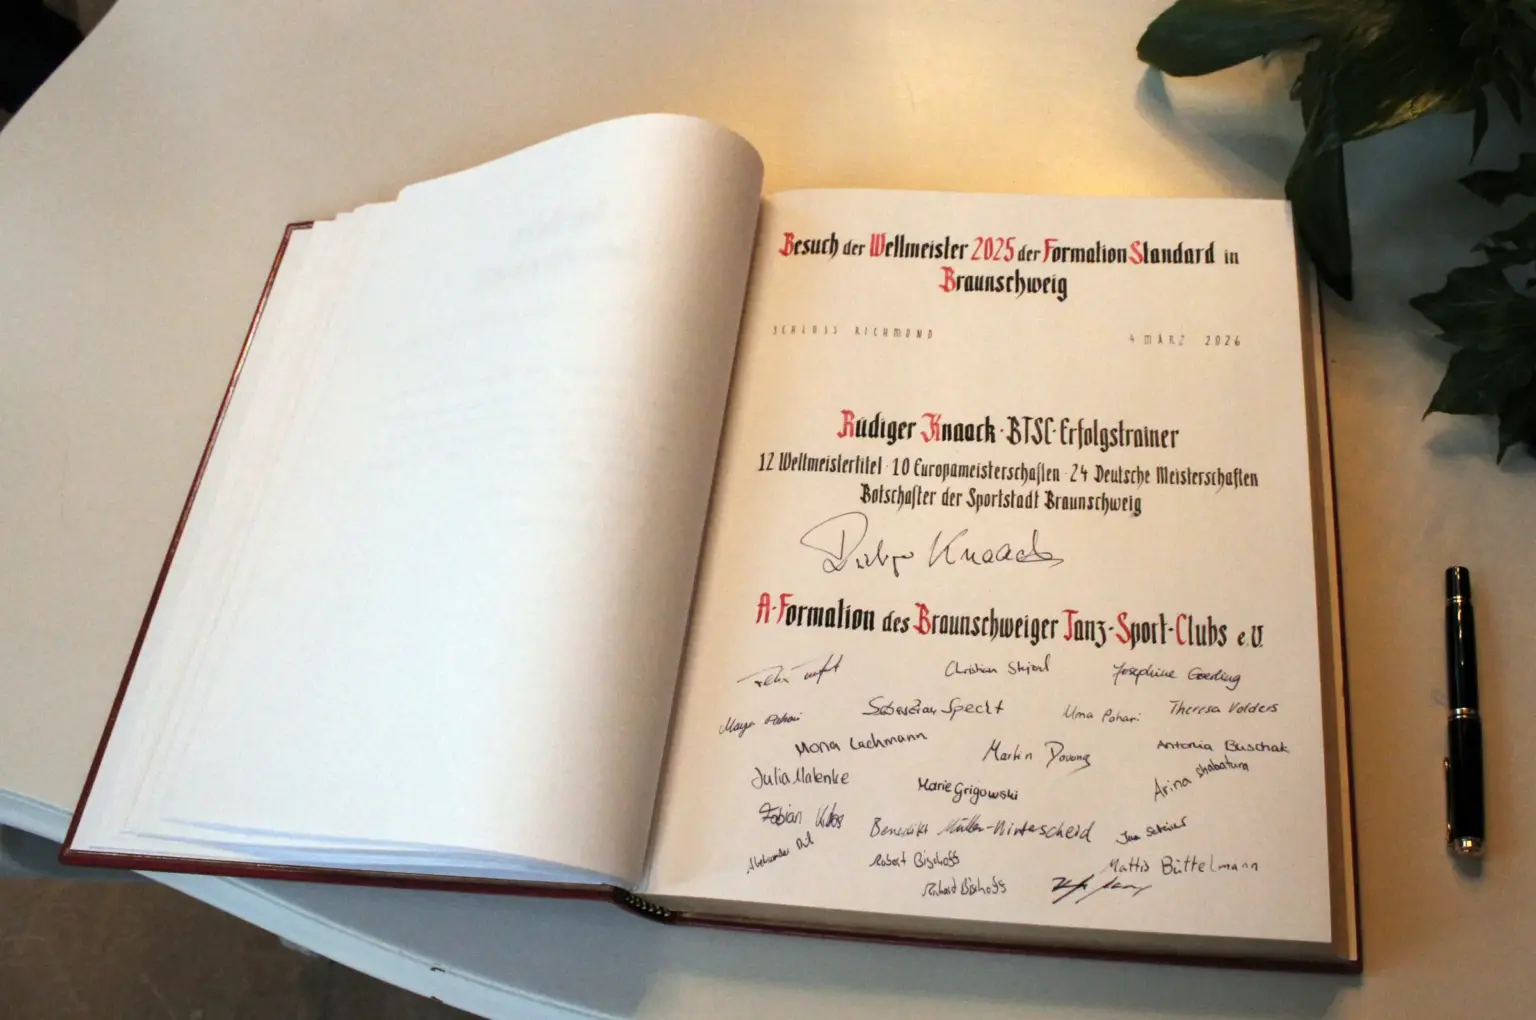 Besuch der Weltmeister 2025 der Formation Standard in
Braunschweig
SCHLOSS RICHMOND 4 MÄRZ 2026
Rüdiger Knaack · BTSC-Erfolgstrainer
12 Weltmeistertitel · 10 Europameisterschaften · 24 Deutsche Meisterschaften
Botschafter der Sportstadt Braunschweig
Knaack
A-Formation des Braunschweiger Tanz-Sport-Clubs e.V.
Christian Josephine Goerling
Maya Pahari Sebastian Specht Uma Pahari Theresa Volders
Mona Lachmann Martin Antonia Buschak
Julia Malenke Marie Grigowski Arina Shabatura
Fabian Benedikt Müller-Winterscheid Jan
Alexander Robert Bischoff Mattis Büttelmann
Richard Bischoff